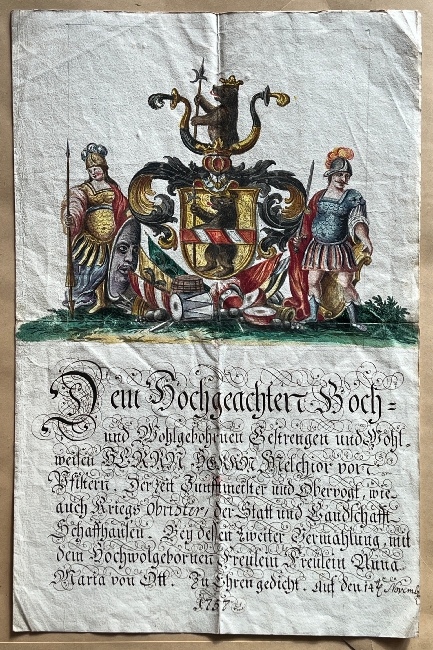 Dem Hochgeachten Hoch=
und Wohlgebohrnen Gestrengen und Wohl-
weisen HERRN HERRN Melchior von
Pfistern. Der zeit Zunfftmeister und Obervogt, wie
auch Kriegs Obrister, der Statt und Landschafft
Schaffhausen. Bey deßen zweiter Vermahlung, mit
dem Hochwolgebornen Freulein Freulein Anna
Maria von Ott. Zu Ehren gedicht. Auf den 14t Novemb
1757